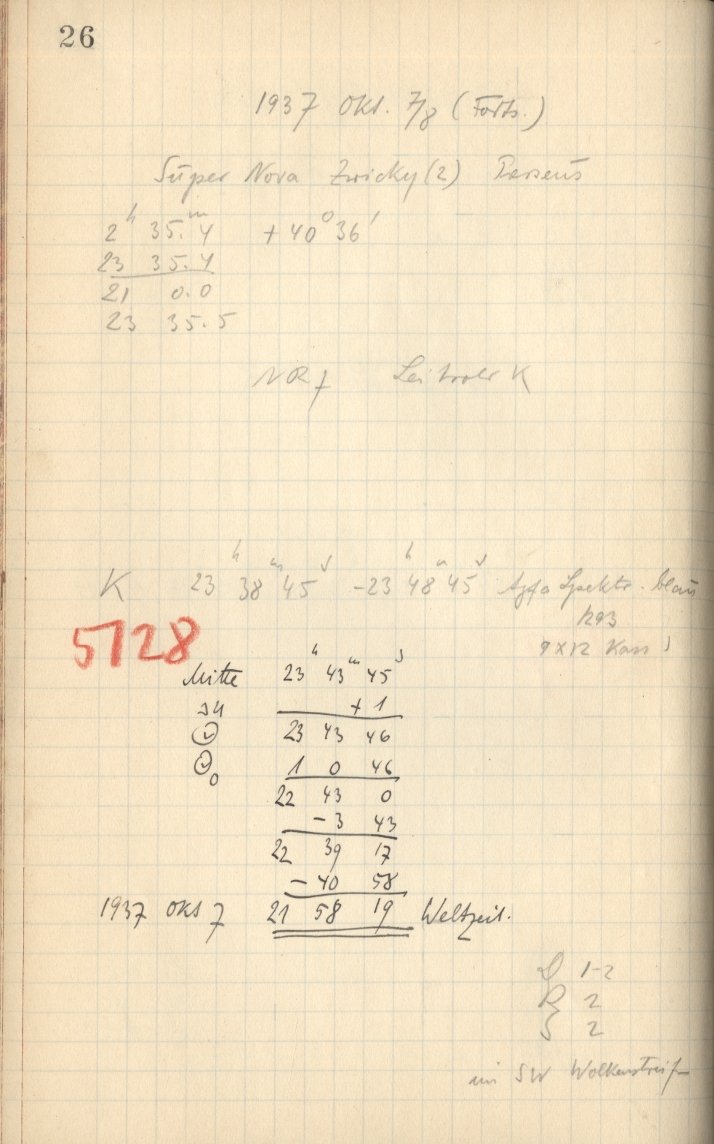 26
1937 Okt. 7/8 (Forts.)
Super Nova Zwicky (2) Perseus
2h 35.m4 +40° 36'
23 35.4
21 0.0
23 35.5
K 23h 38m 45s -23h 48m 45s Agfa Spektr. blau
5128
9x12 Kass
Mitte 23h 43m 45s
+ 1
23 43 46
1 0 46
22 43 0
- 3 43
22 39 17
- 40 58
1937 Okt 7 21 58 19 Weltzeit.
1-2
2
S 2
im SW Wolkenstreif